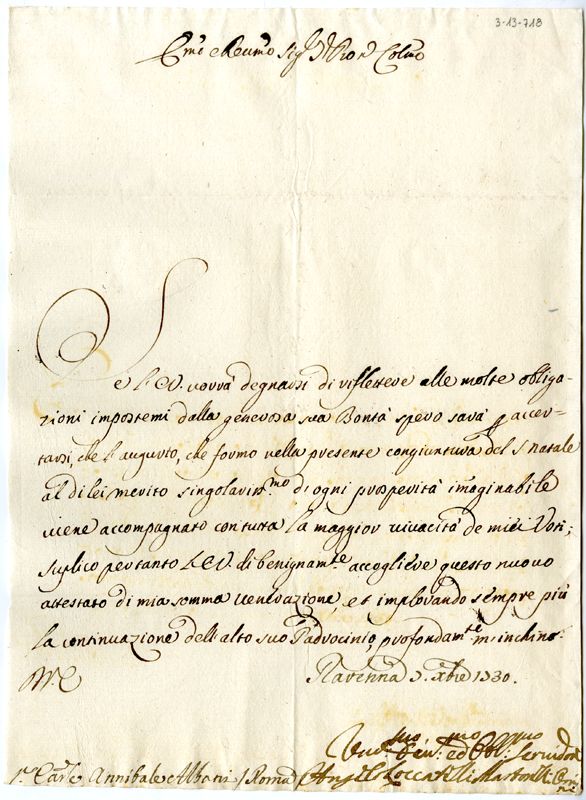 3-13-718
Em̃o e Reum̃o Sig.r Pr̃on Colm̃o
Se l'E.V. vorrà degnarsi di riflettere alle molte obliga-
zioni impostemi dalla generosa sua Bontà spero sarà accer-
tarsi, che l'augurio, che formo nella presente congiuntura del S. Natale
al di lei merito singolariss.mo d'ogni prosperità imaginabile
viene accompagnato con tutta la maggior vivacità de miei Voti;
Suplico pertanto L'E.V. di benignam.te accogliere questo nuovo
attestato di mia somma venerazione, et implorando sempre più
la continuazione dell'alto suo Padrocinio, profondam.te m'inchino.
Ravenna xbre 1730.
Card.le Annibale Albani / Roma
ed Obl.mo Servidore
Angelo